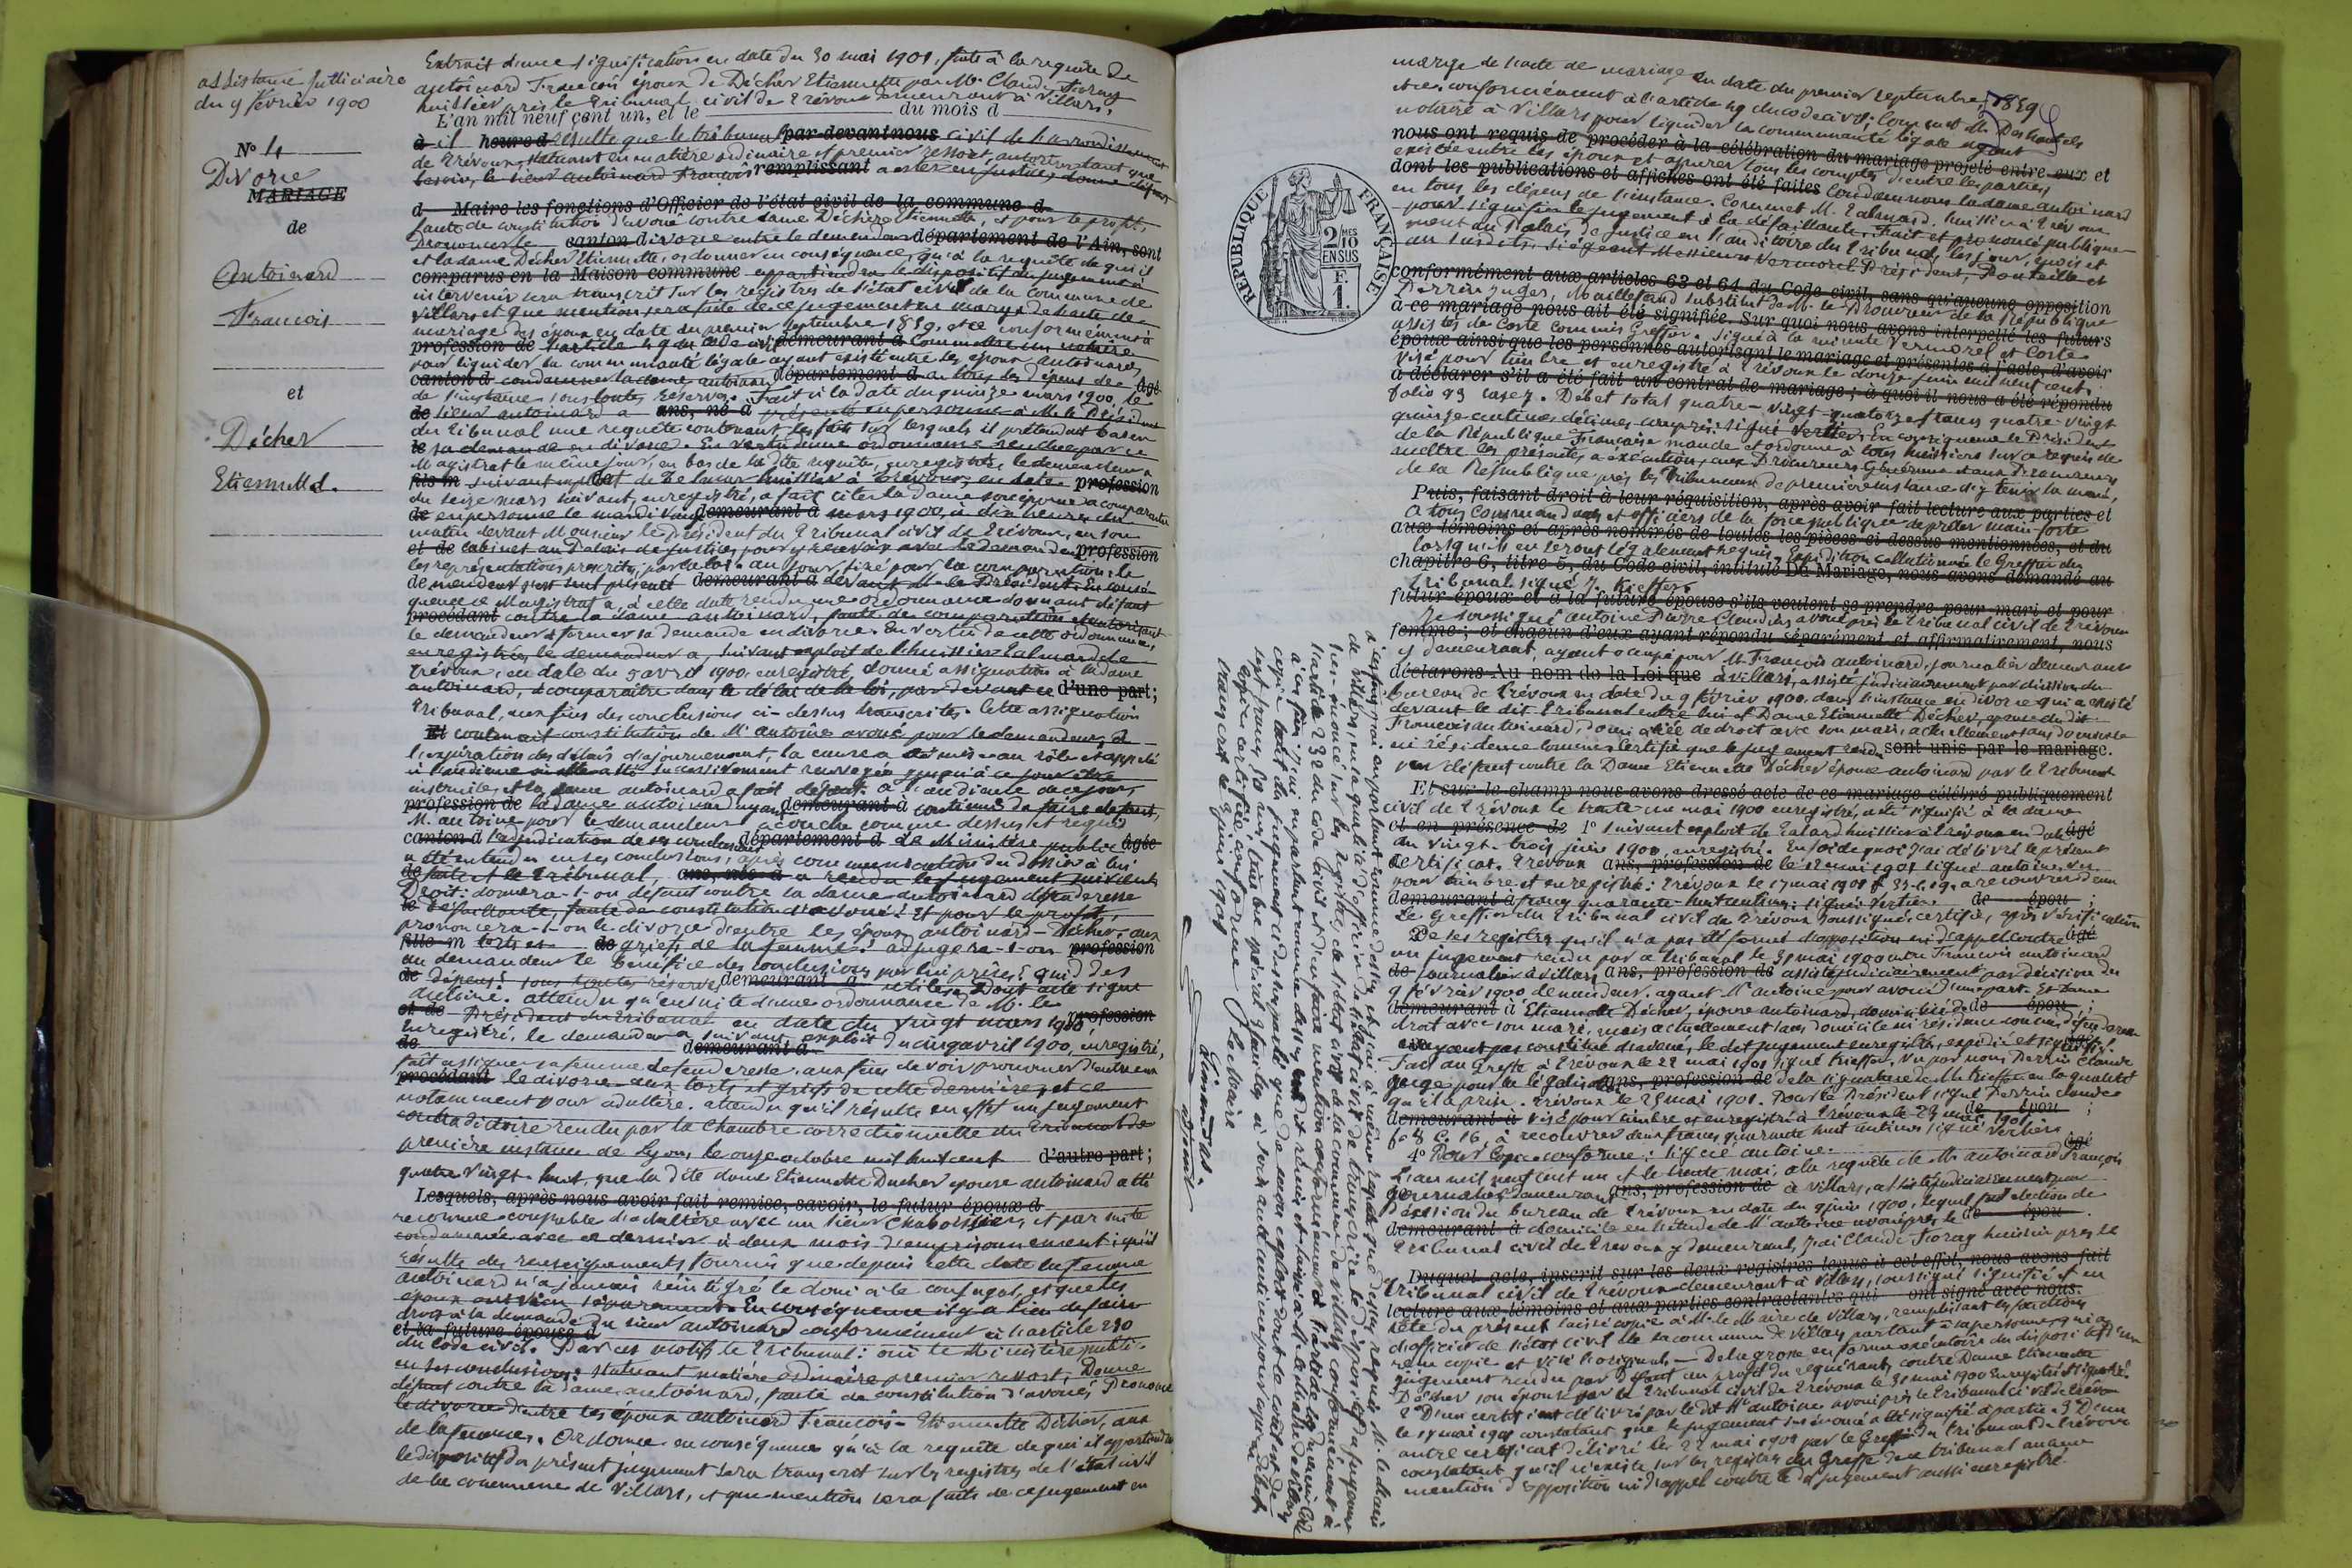 assistance judiciaire
du 9 février 1900
N° 4
Divorce
MARIAGE
de
Antoinard
François
et
Décher
Etiennette
Extrait d'une signification en date du 30 mai 1901, faite à la requête de
antoinard François époux de Décher Etiennette par Me Claude Foray
huissier près le Tribunal civil de Trévoux demeurant à Villars,
L'an mil neuf cent un, et le du mois d
à il heure d résulte que le tribunal par-devant nous civil de l'arrondissement
de Trévoux, statuant en matière ordinaire et premier ressort, autorisant que
besoin, le sieur antoinard François remplissant a ester en justice, donne défaut
d Maire les fonctions d'Officier de l'état civil de la commune d
faute de constitution d'avoué contre dame Décher Etiennette, et pour le profit,
Prononcer le canton divorce entre le demandeur département de l'Ain, sont
et la dame Décher Etiennette, ordonner en conséquence, qu'à la requête de qui il
comparus en la Maison commune appartiendra le dispositif du jugement à
intervenir sera transcrit sur les registres de l'état civil de la commune de
Villars et que mention sera faite de ce jugement en marge de l'acte de
mariage des époux en date du premier septembre 1859, et ce conformément à
profession de l'article 49 du code civil demeurant à Commettre un notaire
pour liquider la communauté légale ayant existé entre les époux antoinard,
canton d condamner la dame antoinard département d en tous les dépens de âgé
de l'instance sous toutes réserves. Fait à la date du quinze mars 1900, le
de sieur antoinard a ans, né à présenté en personne à M. le Président
du Tribunal une requête contenant les faits sur lesquels il prétendait baser
le sa demande en divorce. En vertu d'une ordonnance rendue par ce
Magistrat le même jour, en bas de la dite requête, enregistrée, le demandeur a
fils m suivant exploit de Talmard huissier à Trévoux, en date profession
du seize mars suivant, enregistré, a fait citer la dame son épouse à comparaître
de en personne le mardi vingt demeurant à mars 1900, à dix heures du
matin devant Monsieur le président du Tribunal civil de Trévoux, en son
et de cabinet au Palais de justice, pour y recevoir avec le demandeur profession
les représentations prescrites par la loi. au jour fixé pour la comparution, le
demandeur s'est seul présenté demeurant à devant M. le Président. En consé-
quence ce Magistrat a, à cette date rendu une ordonnance donnant défaut
procédant contre la dame antoinard, faute de comparution et autorisant
le demandeur à former sa demande en divorce. En vertu de cette ordonnance,
enregistrée, le demandeur a, suivant exploit de l'huissier Talmard de
Trévoux, en date du 5 avril 1900, enregistré, donné assignation à la dame
antoinard, à comparaître dans le délai de la loi, par devant ce d'une part;
Tribunal, aux fins des conclusions ci-dessus transcrites. Cette assignation
Et contenait constitution de Me antoine avoué pour le demandeur; à
l'expiration des délais d'ajournement, la cause a été mise au rôle et appelée
à l'audience où elle a été successivement renvoyée jusqu'à ce jour être
instruite, et la dame antoinard a fait défaut. à l'audience de ce jour,
profession de la dame antoinard ayant demeurant à continué de faire défaut,
M. antoine pour le demandeur a conclu comme dessus et requis
canton d l'adjudication de ses conclusions département d Le Ministère public âgée
a été entendu en ses conclusions, après communication du dossier à lui
de faite et le Tribunal, ans, née à a rendu le jugement suivant:
Droit: donnera-t-on défaut contre la dame antoinard défenderesse
le défaillante, faute de constitution d'avoué? Et pour le profit,
prononcera-t-on le divorce d'entre les époux antoinard - Décher, aux
fille m torts et de griefs de la femme? adjugera-t-on profession
au demandeur le bénéfice des conclusions par lui prises? Quid des
de dépens? sous toutes réserves demeurant à utiles. Dont acte signé
Antoine. attendu qu'ensuite d'une ordonnance de M. le
et de Président du Tribunal en date du vingt mars 1900 profession
enregistré, le demandeur a suivant exploit du cinq avril 1900, enregistré,
de demeurant à
fait assigner sa femme défenderesse, aux fins de voir prononcer d'entre eux
procédant le divorce aux torts et griefs de cette dernière, et ce
notamment pour adultère. attendu qu'il résulte en effet un jugement
contradictoire rendu par la chambre correctionnelle du Tribunal de
première instance de Lyon, le onze octobre mil huit cent d'autre part;
quatre vingt-huit, que la dite dame Etiennette Ducher épouse antoinard a été
Lesquels, après nous avoir fait remise, savoir, le futur époux d
reconnue coupable d'adultère avec un sieur Chaboissier, et par suite
condamnée avec ce dernier à deux mois d'emprisonnement; qu'il
résulte des renseignements fournis que depuis cette date la femme
antoinard n'a jamais réintégré le domicile conjugal, et que les
époux ont vécu séparément. En conséquence il y a lieu de faire
droit à la demande du sieur antoinard conformément à l'article 230
et la future épouse d
du code civil. Par ces motifs le Tribunal: ouï le Ministère public
en ses conclusions: statuant matière ordinaire premier ressort, Donne
défaut contre la dame antoinard, faute de constitution d'avoué, Prononce
le divorce d'entre les époux antoinard François - Etiennette Décher, aux
de la femme. Ordonne en conséquence qu'à la requête de qui il appartiendra
le dispositif du présent jugement sera transcrit sur les registres de l'état civil
de la commune de Villars, et que mention sera faite de ce jugement en
marge de l'acte de mariage en date du premier septembre, 1859
et ce, conformément à l'article 49 du code civil; commet Me Deshautels
notaire à Villars pour liquider la communauté légale ayant
nous ont requis de procéder à la célébration du mariage projeté entre eux et
existée entre les époux et apurer tous les comptes d'entre les parties,
dont les publications et affiches ont été faites Condamnons la dame antoinard
en tous les dépens de l'instance. Commet M. Talmard, huissier à Trévoux
pour signifier le jugement à la défaillante. Fait et prononcé publique-
ment au Palais de justice en l'auditoire du Tribunal, les jour, mois et
an susdits, siégeant Messieurs Vermorel Président, Ponteille et
conformément aux articles 63 et 64 du Code civil, sans qu'aucune opposition
Perrin juges, Maillefaud substitut de M. le Procureur de la République
à ce mariage nous ait été signifiée. Sur quoi nous avons interpellé les futurs
assistés de Coste commis Greffier. Signé à la minute Vermorel et Coste
époux ainsi que les personnes autorisant le mariage et présentes à l'acte, d'avoir
Visé pour timbre et enregistré à Trévoux le douze juin mil neuf cent,
à déclarer s'il a été fait un contrat de mariage; à quoi il nous a été répondu
folio 93 case 7. Débet total quatre-vingt-quatorze francs quatre-vingt
quinze centimes, décimes compris. signé Verlier. En conséquence le Président
de la République Française mande et ordonne à tous huissiers sur ce requis de
mettre les présentes à exécution, aux Procureurs Généraux et aux Procureurs
de la République, près les Tribunaux de première instance d'y tenir la main,
Puis, faisant droit à leur réquisition, après avoir fait lecture aux parties et
à tous commandants et officiers de la force publique de prêter main-forte
aux témoins et après nommés de toutes les pièces ci-dessus mentionnées, et du
lorsqu'ils en seront légalement requis. Expédition collationnée le Greffier du
chapitre 6, titre 5, du Code civil, intitulé Du Mariage, nous avons demandé au
Tribunal signé J. Kieffer.
futur époux et à la future épouse s'ils veulent se prendre pour mari et pour
Je soussigné antoine Pierre Claudius avoué près le Tribunal civil de Trévoux
femme; et chacun d'eux ayant répondu séparément et affirmativement, nous
y demeurant, ayant occupé pour M. François antoinard, journalier demeurant
déclarons Au nom de la Loi que à Villars, assisté judiciairement par décision du
bureau de Trévoux en date du 9 février 1900, dans l'instance en divorce qui a existé
devant le dit Tribunal entre lui et Dame Etiennette Décher, épouse du dit
François antoinard, domiciliée de droit avec son mari, actuellement sans domicile
ni résidence connus, Certifie que le jugement rendu sont unis par le mariage.
par défaut contre la Dame Etiennette Décher épouse antoinard par le Tribunal
Et sur le champ nous avons dressé acte de ce mariage célébré publiquement
civil de Trévoux le trente-un mai 1900 enregistré, a été signifié à la dame
et en présence de 1° suivant exploit de Talard huissier à Trévoux en date âgé
du vingt-trois juin 1900, enregistré. En foi de quoi j'ai délivré le présent
certificat. Trévoux ans, profession de le 12 mai 1901 signé antoine. Visé
pour timbre et enregistré: Trévoux le 17 mai 1901 f° 35 c. 19. a recouvrer deux
demeurant à francs quarante-huit centimes: signé Vertier. de épou ;
Le Greffier du Tribunal civil de Trévoux soussigné, certifie, après vérification
2° De ses registres qu'il n'a pas été formé d'opposition ni d'appel contre âgé
un jugement rendu par ce tribunal le 31 mai 1900 entre François antoinard
de journalier à Villars, ans, profession de assisté judiciairement par décision du
9 février 1900 demandeur, ayant Me antoine pour avoué d'une part. Et Dame
demeurant à Etiennette Décher, épouse antoinard, domiciliée de de épou ;
droit avec son mari, mais actuellement sans domicile ni résidence connus, défenderesse
n'ayant pas constitué d'avoué, le dit jugement enregistré, expédié et signifié.
Fait au Greffe à Trévoux le 22 mai 1901 signé Kieffer. Vu par nous, Perrin Claude
juge pour la légalisation ans, profession de de la signature de M. Kieffer en la qualité
qu'il a prise. Trévoux le 25 mai 1901. Pour le Président signé Perrin Claude
demeurant à Visé pour timbre et enregistré à Trévoux le 29 mai 1901 de épou ;
f° 8 C. 16, à recouvrer deux francs quarante huit centimes signé Vertier
4° Pour copie conforme: signé antoine. âgé
L'an mil neuf cent un et le trente mai, à la requête de M. antoinard François
journalier demeurant ans, profession de à Villars, assisté judiciairement par
décision du bureau de Trévoux en date du 9 juin 1900, lequel fait élection de
demeurant à domicile en l'étude de Me antoine avoué près le de épou .
Tribunal civil de Trévoux y demeurant, j'ai Claude Foray huissier près le
Duquel acte, inscrit sur les deux registres tenus à cet effet, nous avons fait
Tribunal civil de Trévoux demeurant à Villars, soussigné signifié et en
lecture aux témoins et aux parties contractantes qui ont signé avec nous.
tête du présent laissé copie à M. le Maire de Villars, remplissant les fonctions
d'officier de l'état civil de la commune de Villars parlant à sa personne, qui a
reçu copie et visé l'original. — De la grosse en forme exécutoire du dispositif d'un
jugement rendu par Défaut au profit du requérant, contre Dame Etiennette
Décher son épouse par le Tribunal civil de Trévoux le 31 mai 1900 Enregistré et signifié.
2° D'un certificat délivré par le dit Me antoine avoué près le Tribunal civil de Trévoux
le 12 mai 1901 constatant que le jugement sus énoncé a été signifié à partie. 3° D'un
autre certificat délivré le 22 mai 1901 par le Greffier du Tribunal de Trévoux
constatant qu'il n'existe sur les registres du Greffe de ce tribunal aucune
mention d'opposition ni d'appel contre le dit jugement aussi enregistré.
RÉPUBLIQUE FRANÇAISE
2 MES
10
EN SUS
F.
1.
à ces fins j'ai en parlant comme dessus et j'ai à même requête que dessus, requis M. le Maire
de Villars, en sa qualité d'officier de l'état civil de transcrire le dispositif du jugement
sus-énoncé sur les registres de l'état civil de la commune de Villars, conformément à
l'article 252 du code civil et d'en faire mention conformément à l'article 49 du même code
Copie certifiée conforme Le Maire